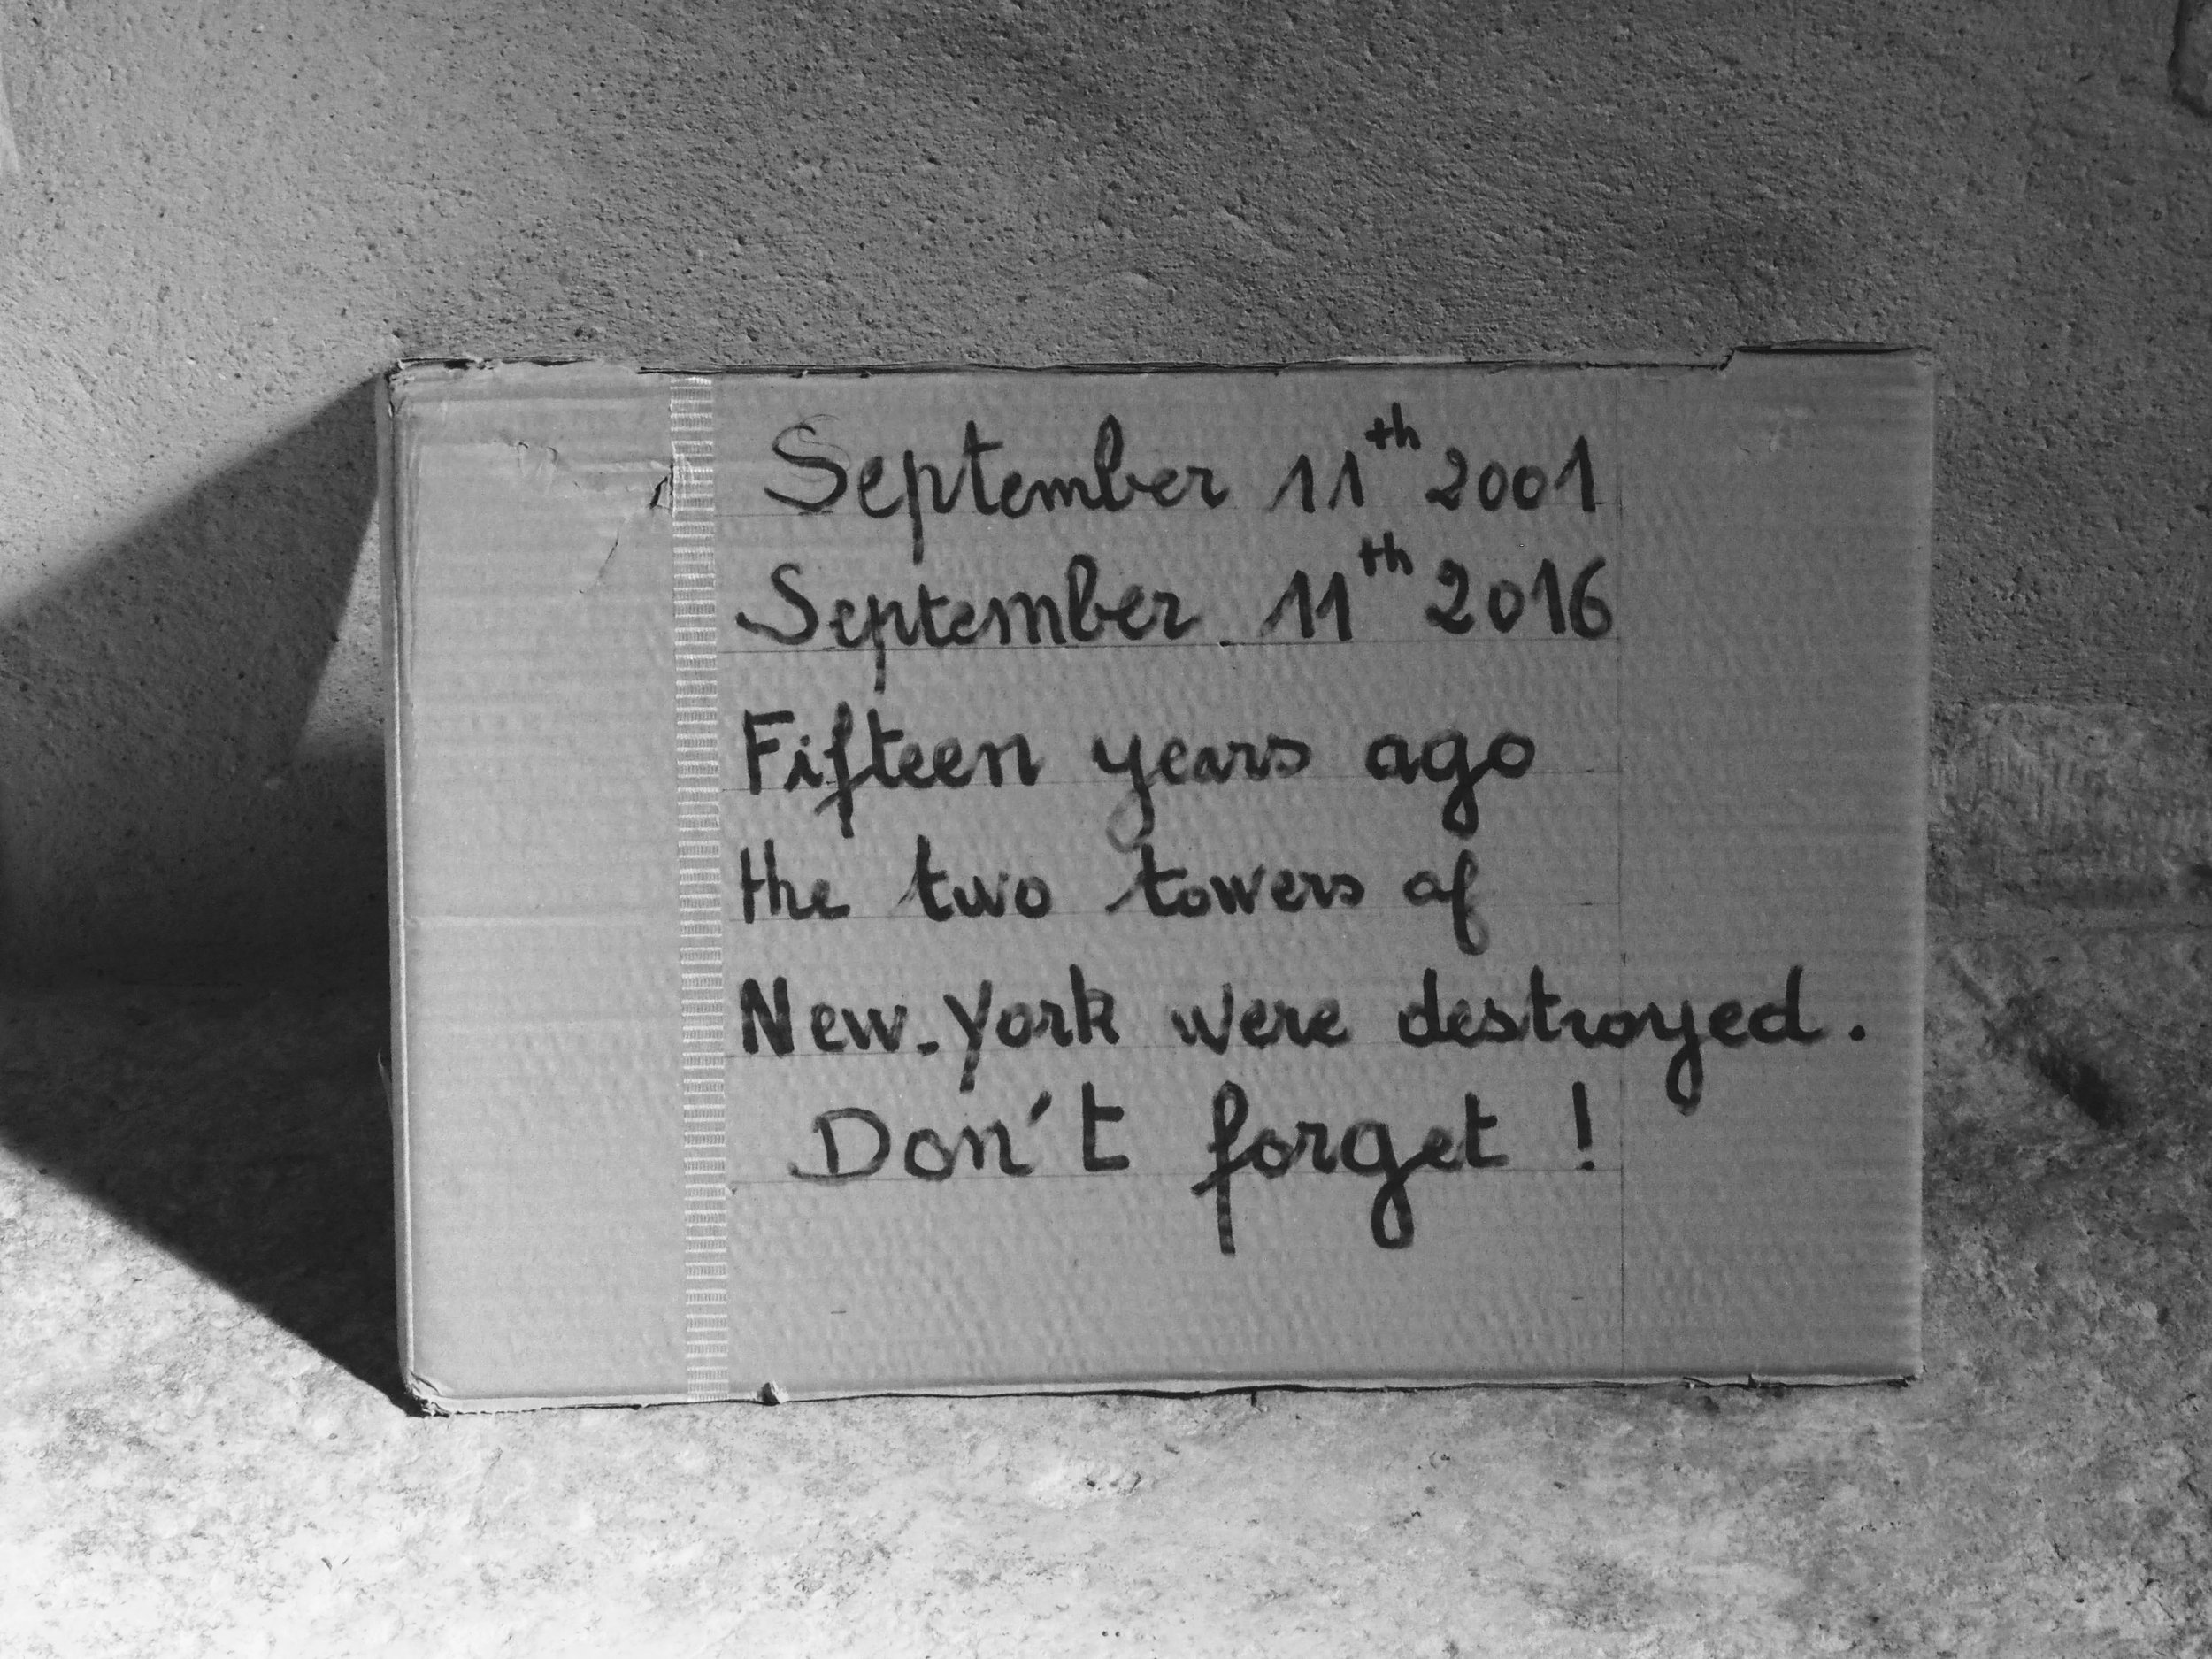 September 11th 2001
September 11th 2016
Fifteen years ago
the two towers of
New-York were destroyed.
Don't forget !